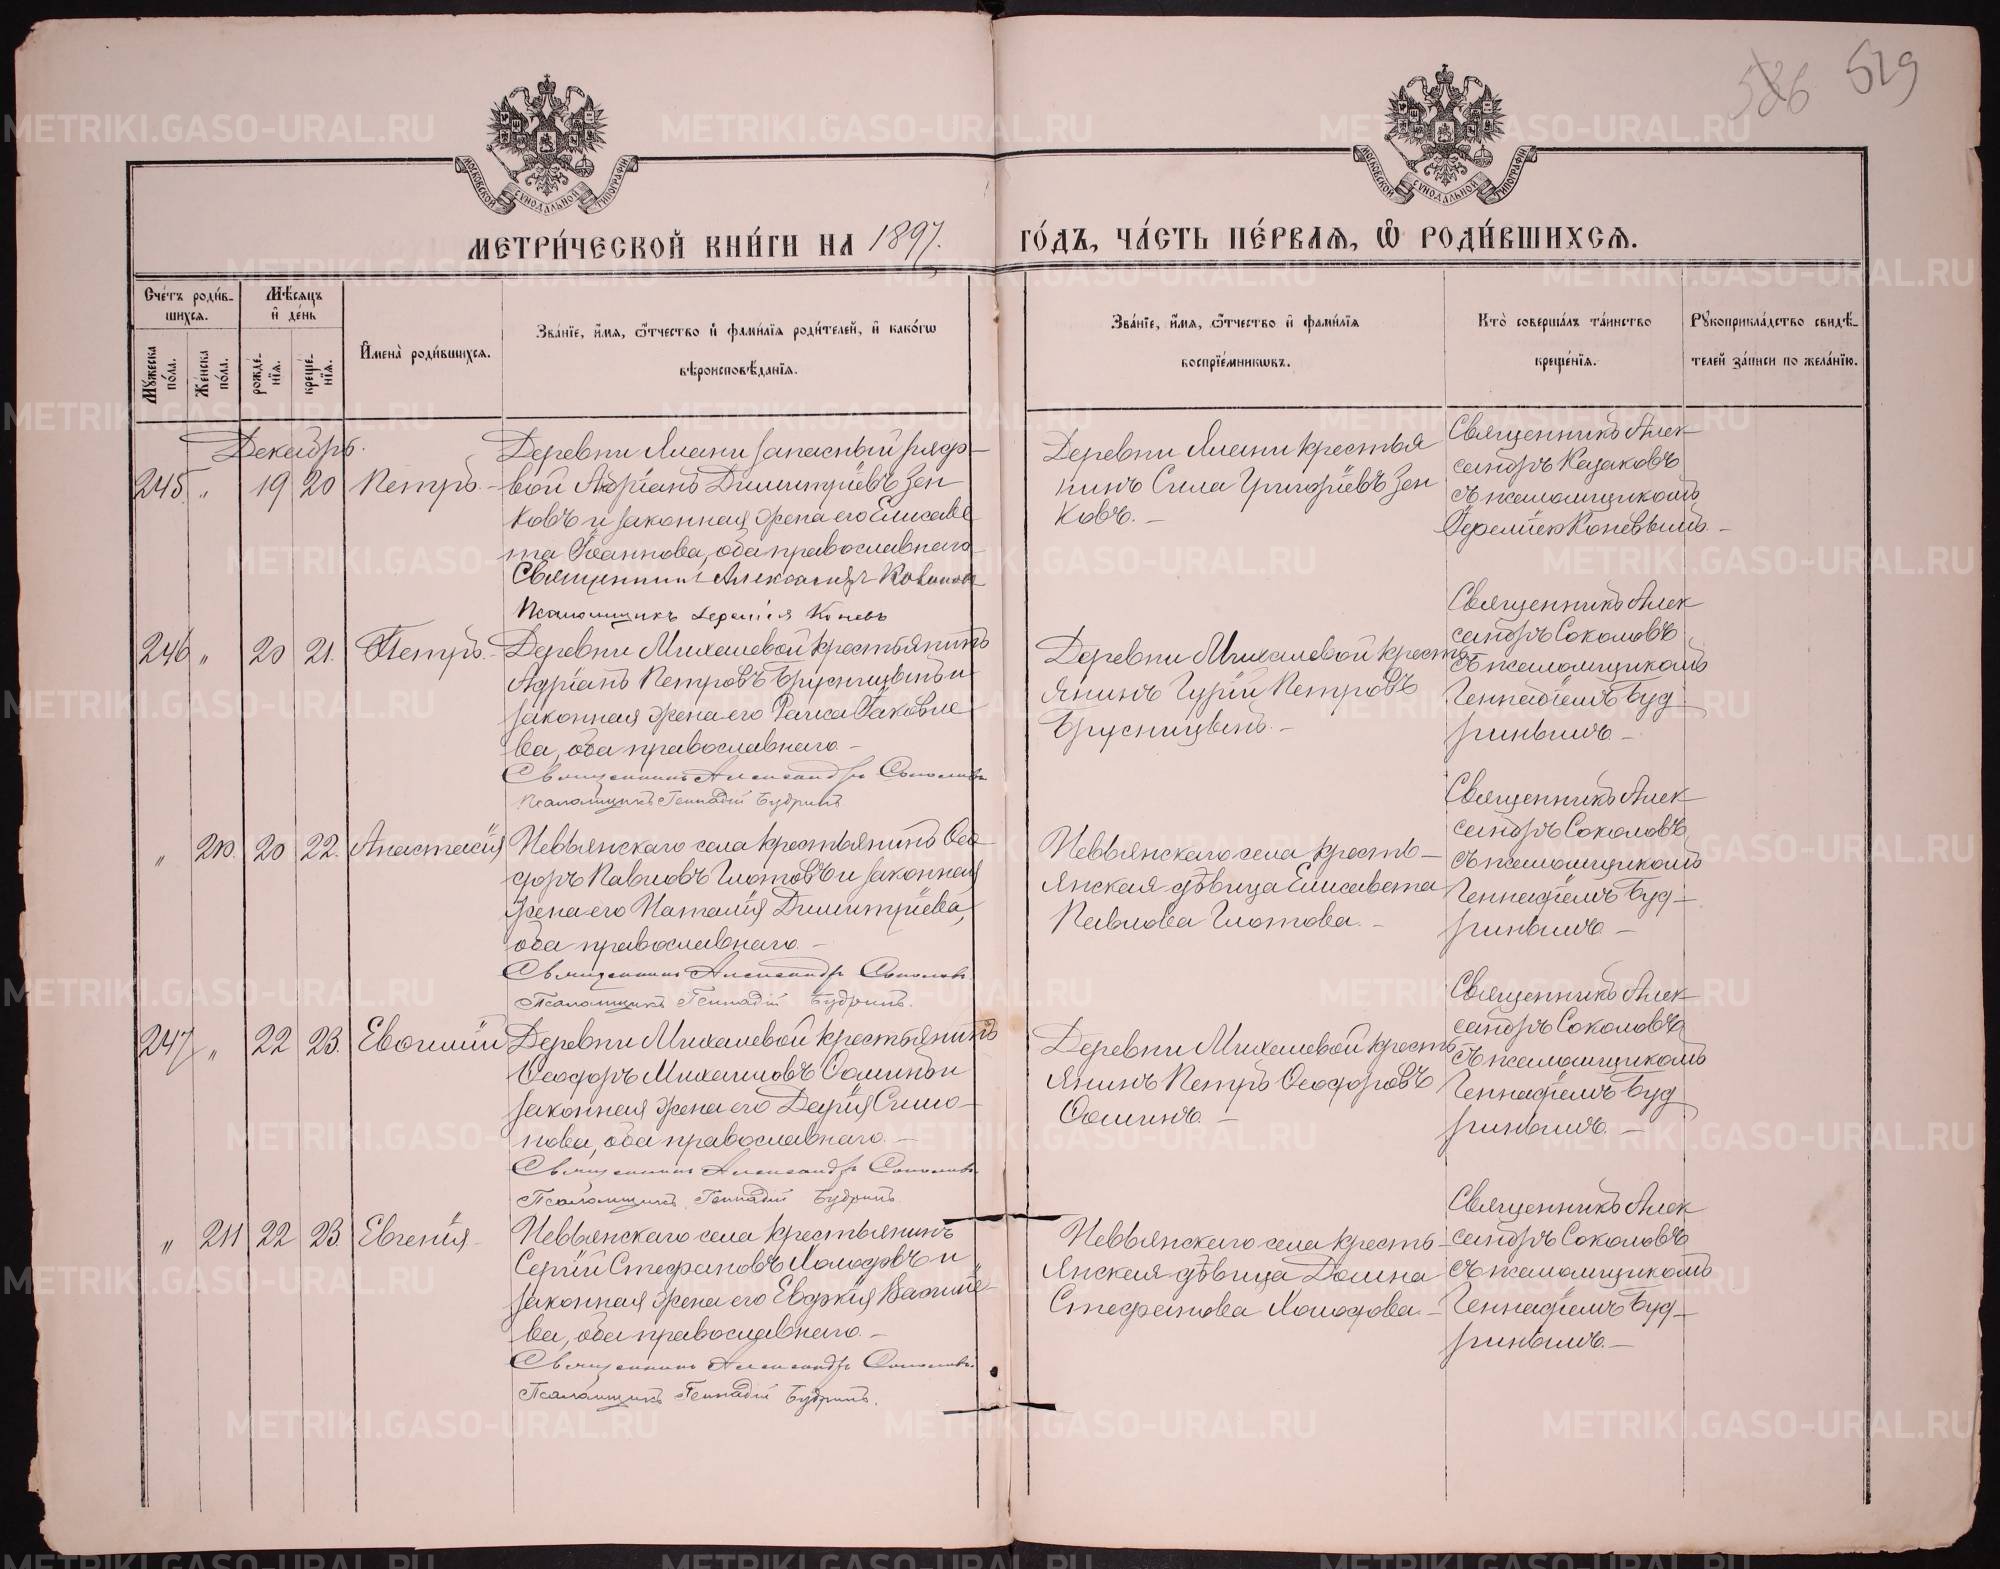 586 529
МОСКОВСКОЙ СУНОДАЛЬНОЙ ТИПОГРАФІИ
МОСКОВСКОЙ СУНОДАЛЬНОЙ ТИПОГРАФІИ
МЕТРИ́ЧЕСКОЙ КНИ́ГИ НА 1897.
ГО́ДЪ, ЧА́СТЬ ПЕ́РВАЯ, Ѡ РОДИ́ВШИХСЯ.
Сче́тъ роди́в-
шихся.
Мѣ́сяцъ
и де́нь
Мꙋ́жеска по́ла.
Же́нска по́ла.
рожде́-нїя.
креще́-нїя.
И҆мена̀ роди́вшихся.
Зва́нїе, и҆́мя, ѻ҆́тчество и҆ фами́лїя роди́телей, и҆ како́гѡ
вѣроисповѣ́данїя.
Зва́нїе, и҆́мя, ѻ҆́тчество и҆ фами́лїя
воспрїе́мникѡвъ.
Кто̀ соверша́лъ та́инство
креще́нїя.
Рꙋкоприкла́дство свидѣ́-
телей за́писи по жела́нїю.
Декабрь.
245 " 19 20 Петръ. –
Деревни Ялани запасный рядо–
вой Адріанъ Димитріевъ Зен
ковъ и законная жена его Елисаве
та Іоаннова, оба православнаго
Священникъ Александръ Казаковъ
Псаломщикъ Іеремія Коневъ
Деревни Ялани крестья
нинъ Сила Григоріевъ Зен
ковъ. –
Священникъ Алек
сандръ Казаковъ
съ псаломщикомъ
Іереміею Коневымъ –
246 " 20 21. Петръ. –
Деревни Михалевой крестьянинъ
Адріанъ Петровъ Брусницынъ и
законная жена его Раиса Іаковле
ва, оба православнаго –
Священникъ Александръ Соколовъ
Псаломщикъ Геннадій Будринъ
Деревни Михалевой кресть
янинъ Гурій Петровъ
Брусницынъ. –
Священникъ Алек
сандръ Соколовъ
съ псаломщикомъ
Геннадіемъ Буд
ринымъ –
" 210. 20 22. Анастасія
Невьянскаго села крестьянинъ Ѳео
доръ Павловъ Глотовъ и законная
жена его Наталія Димитріева,
оба православнаго –
Священникъ Александръ Соколовъ
Псаломщикъ Геннадій Будринъ.
Невьянскаго села кресть–
янская дѣвица Елисавета
Павлова Глотова. –
Священникъ Алек
сандръ Соколовъ
съ псаломщикомъ
Геннадіемъ Буд–
ринымъ –
247 " 22 23. Евѳимій
Деревни Михалевой крестьянинъ
Ѳеодоръ Михаиловъ Ѳоминъ и
законная жена его Дарія Симо–
нова, оба православнаго –
Священникъ Александръ Соколовъ
Псаломщикъ Геннадій Будринъ
Деревни Михалевой кресть
янинъ Петръ Ѳеодоровъ
Ѳоминъ. –
Священникъ Алек
сандръ Соколовъ
съ псаломщикомъ
Геннадіемъ Буд
ринымъ. –
" 211 22 23. Евгенія
Невьянскаго села крестьянинъ
Сергій Стефановъ Холодовъ и
законная жена его Евдокія Василіе–
ва, оба православнаго. –
Священникъ Александръ Соколовъ.
Псаломщикъ Геннадій Будринъ.
Невьянскаго села кресть–
янская дѣвица Домна
Стефанова Холодова –
Священникъ Алек
сандръ Соколовъ
съ псаломщикомъ
Геннадіемъ Буд–
ринымъ. –
METRIKI.GASO-URAL.RU